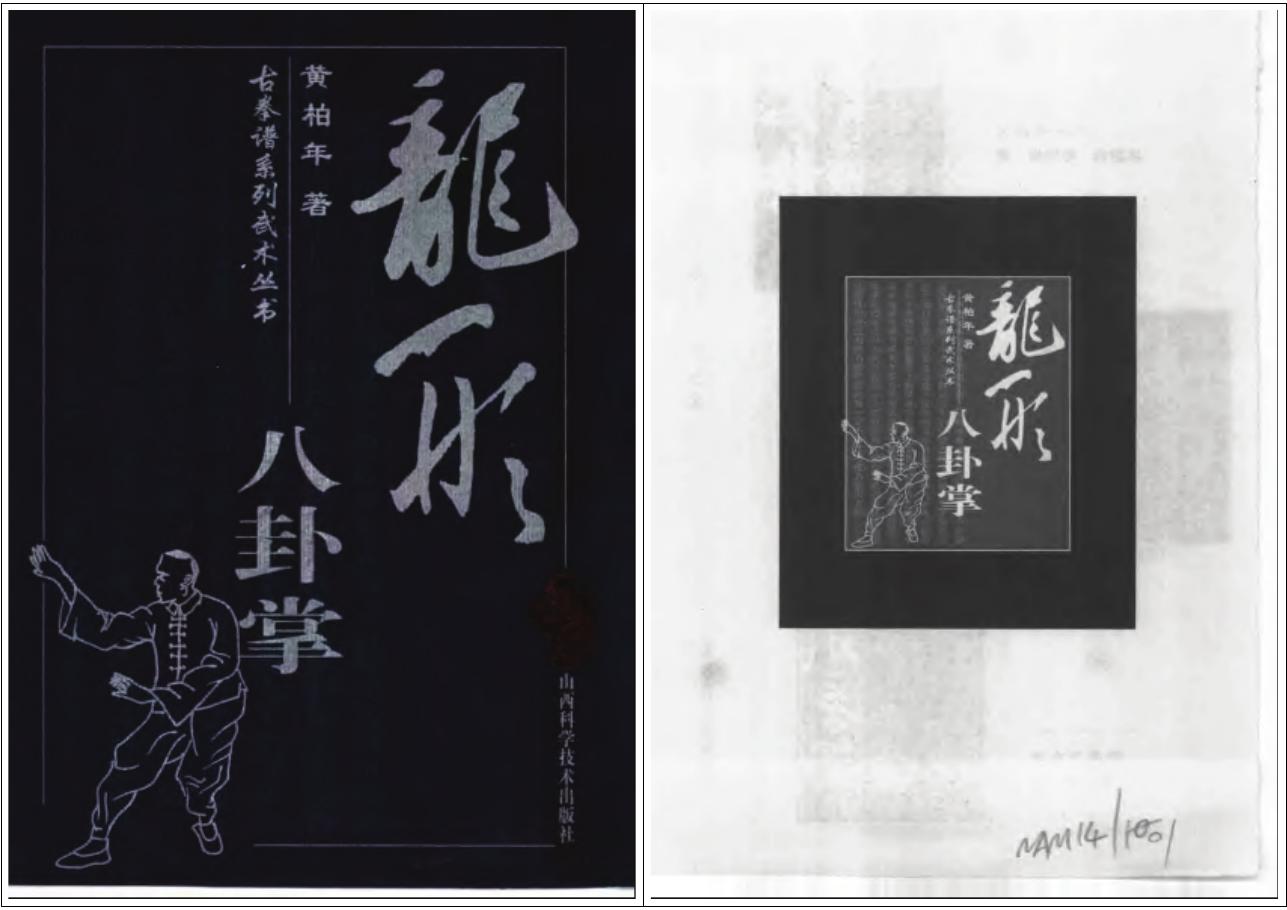 龍形
八卦掌
黄柏年 著
古拳谱系列武术丛书
山西科学技术出版社
龍形
八卦掌
黄柏年 著
古拳谱系列武术丛书